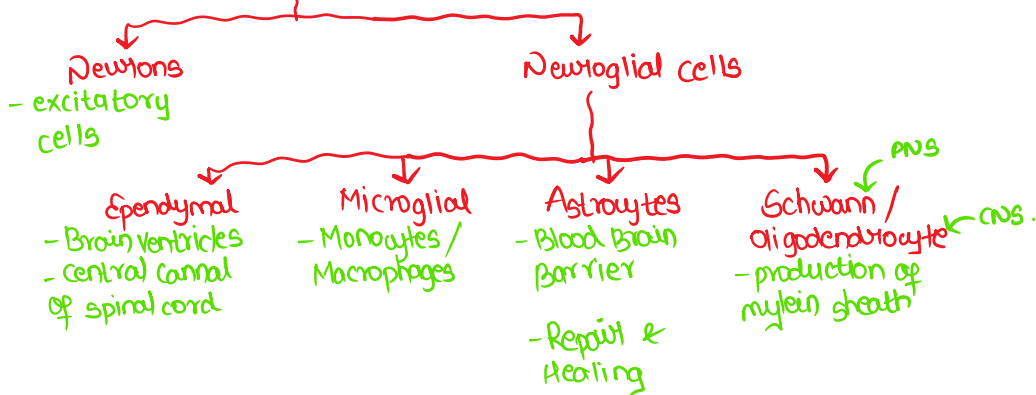 Neurons
- excitatory
cells
Neuroglial cells
Ependymal
- Brain ventricles
- central cannal
of spinal cord
Microglial
- Monocytes /
Macrophages
Astrocytes
- Blood Brain
Barrier
- Repair &
Healing
PNS
Schwann /
Oligodendrocyte
CNS.
- production of
mylein sheath